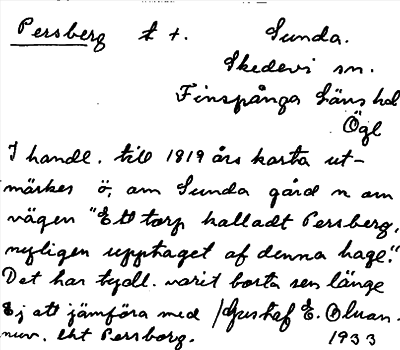 Persberg t +. Sunda.
Skedevi sn.
Finspånga läns hd
Ögl
I handl. till 1819 års karta ut-
märkes ö, om Sunda gård n om
vägen "Ett torp kalladt Persberg,
nyligen upptaget af denna hage."
Det har tydl. varit borta sen länge
Ej att jämföra med /Gustaf E. Olsson.
nuv. lht Persborg. 1933